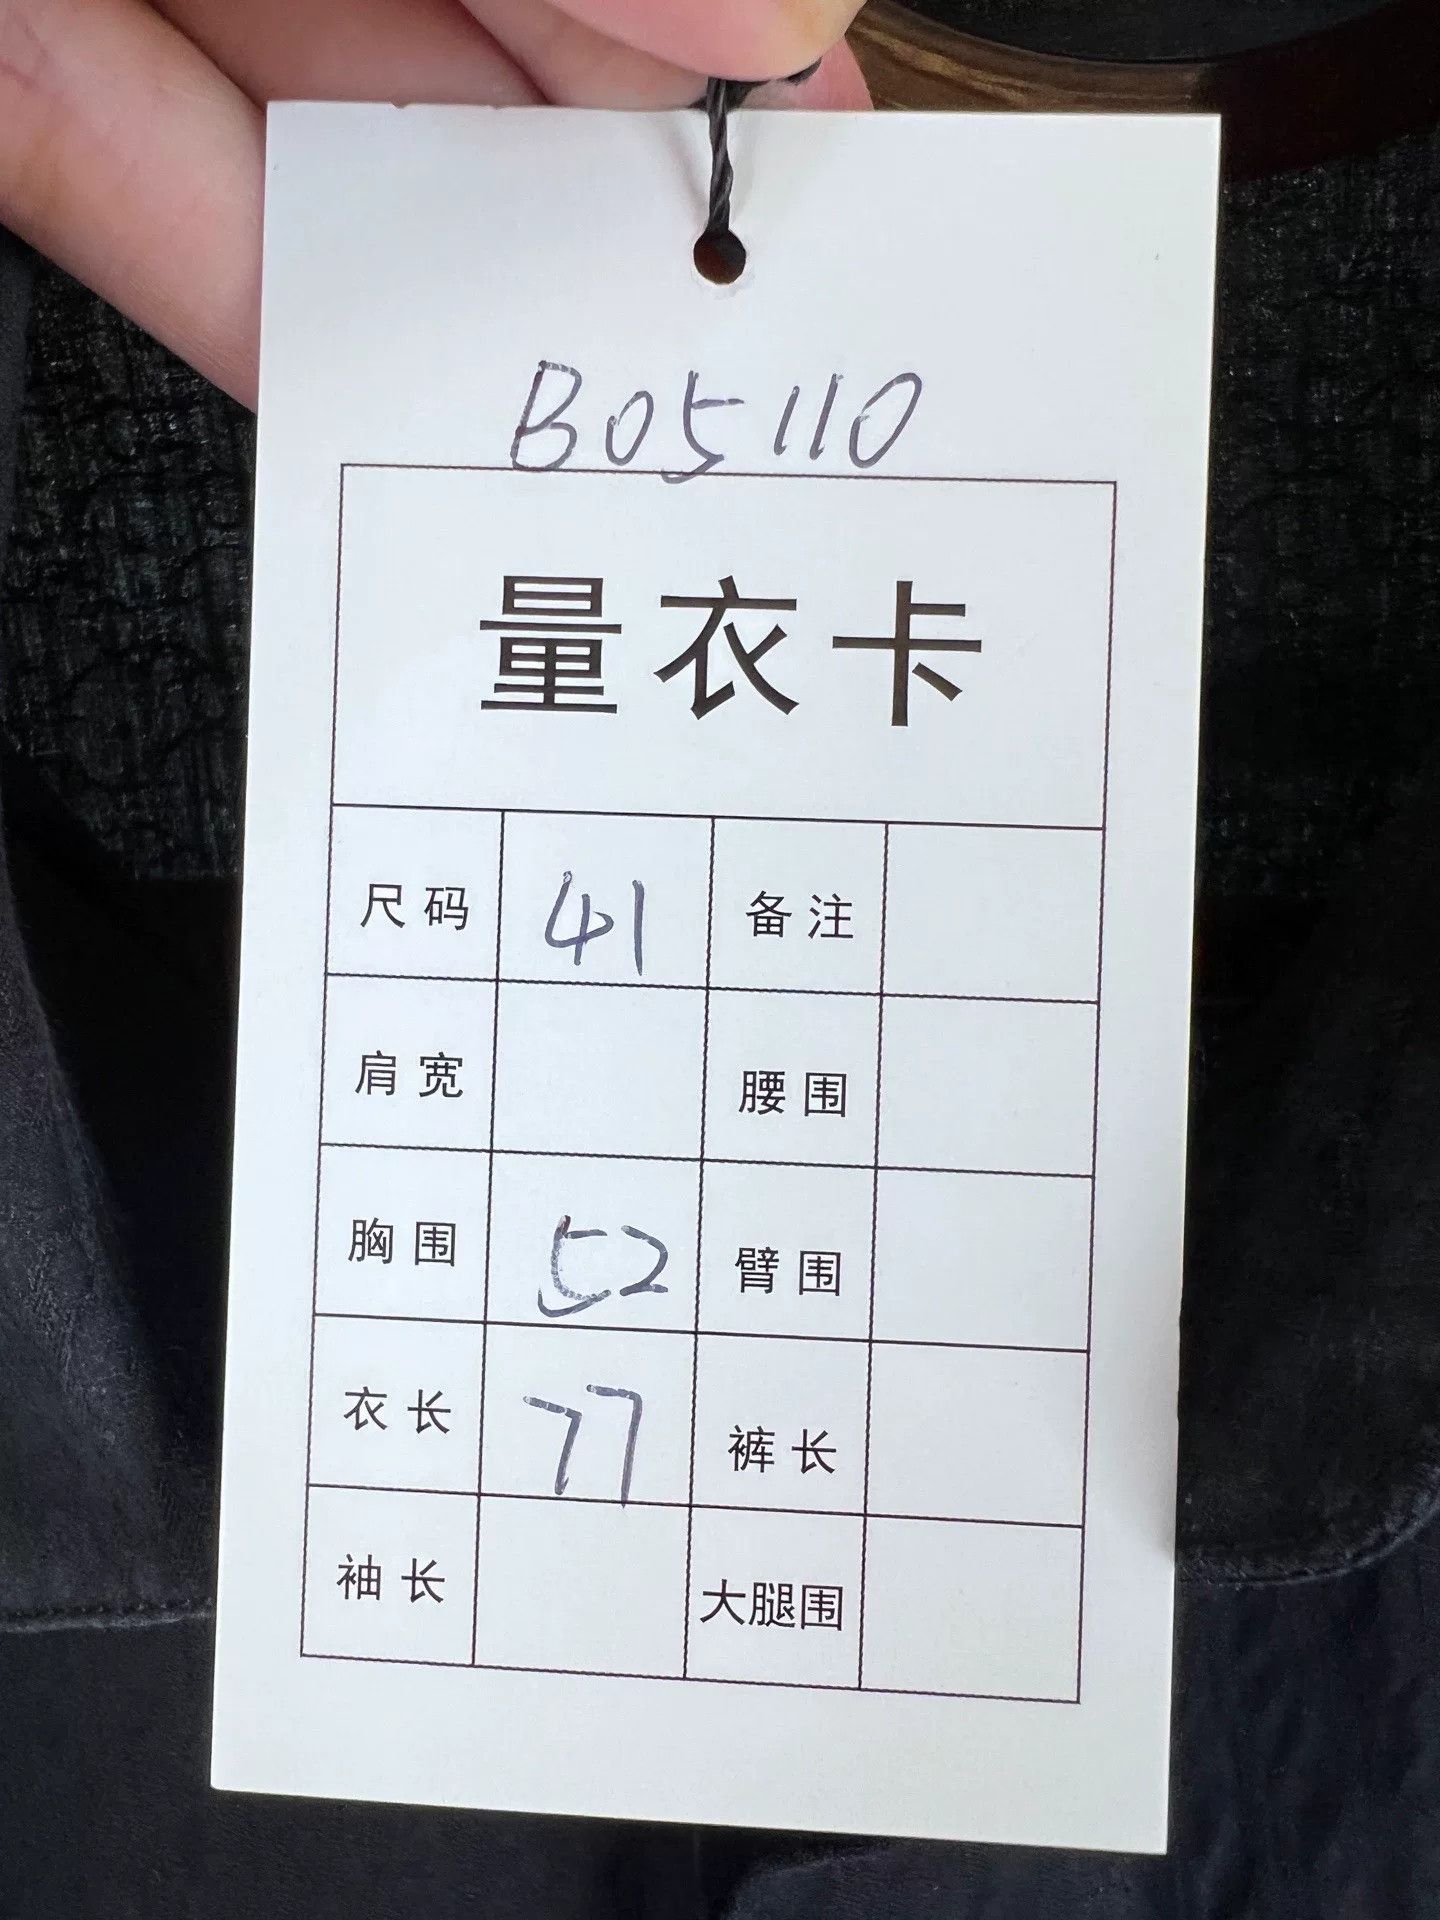 B05110
量衣卡
尺码 41 备注
肩宽 腰围
胸围 52 臂围
衣长 77 裤长
袖长 大腿围